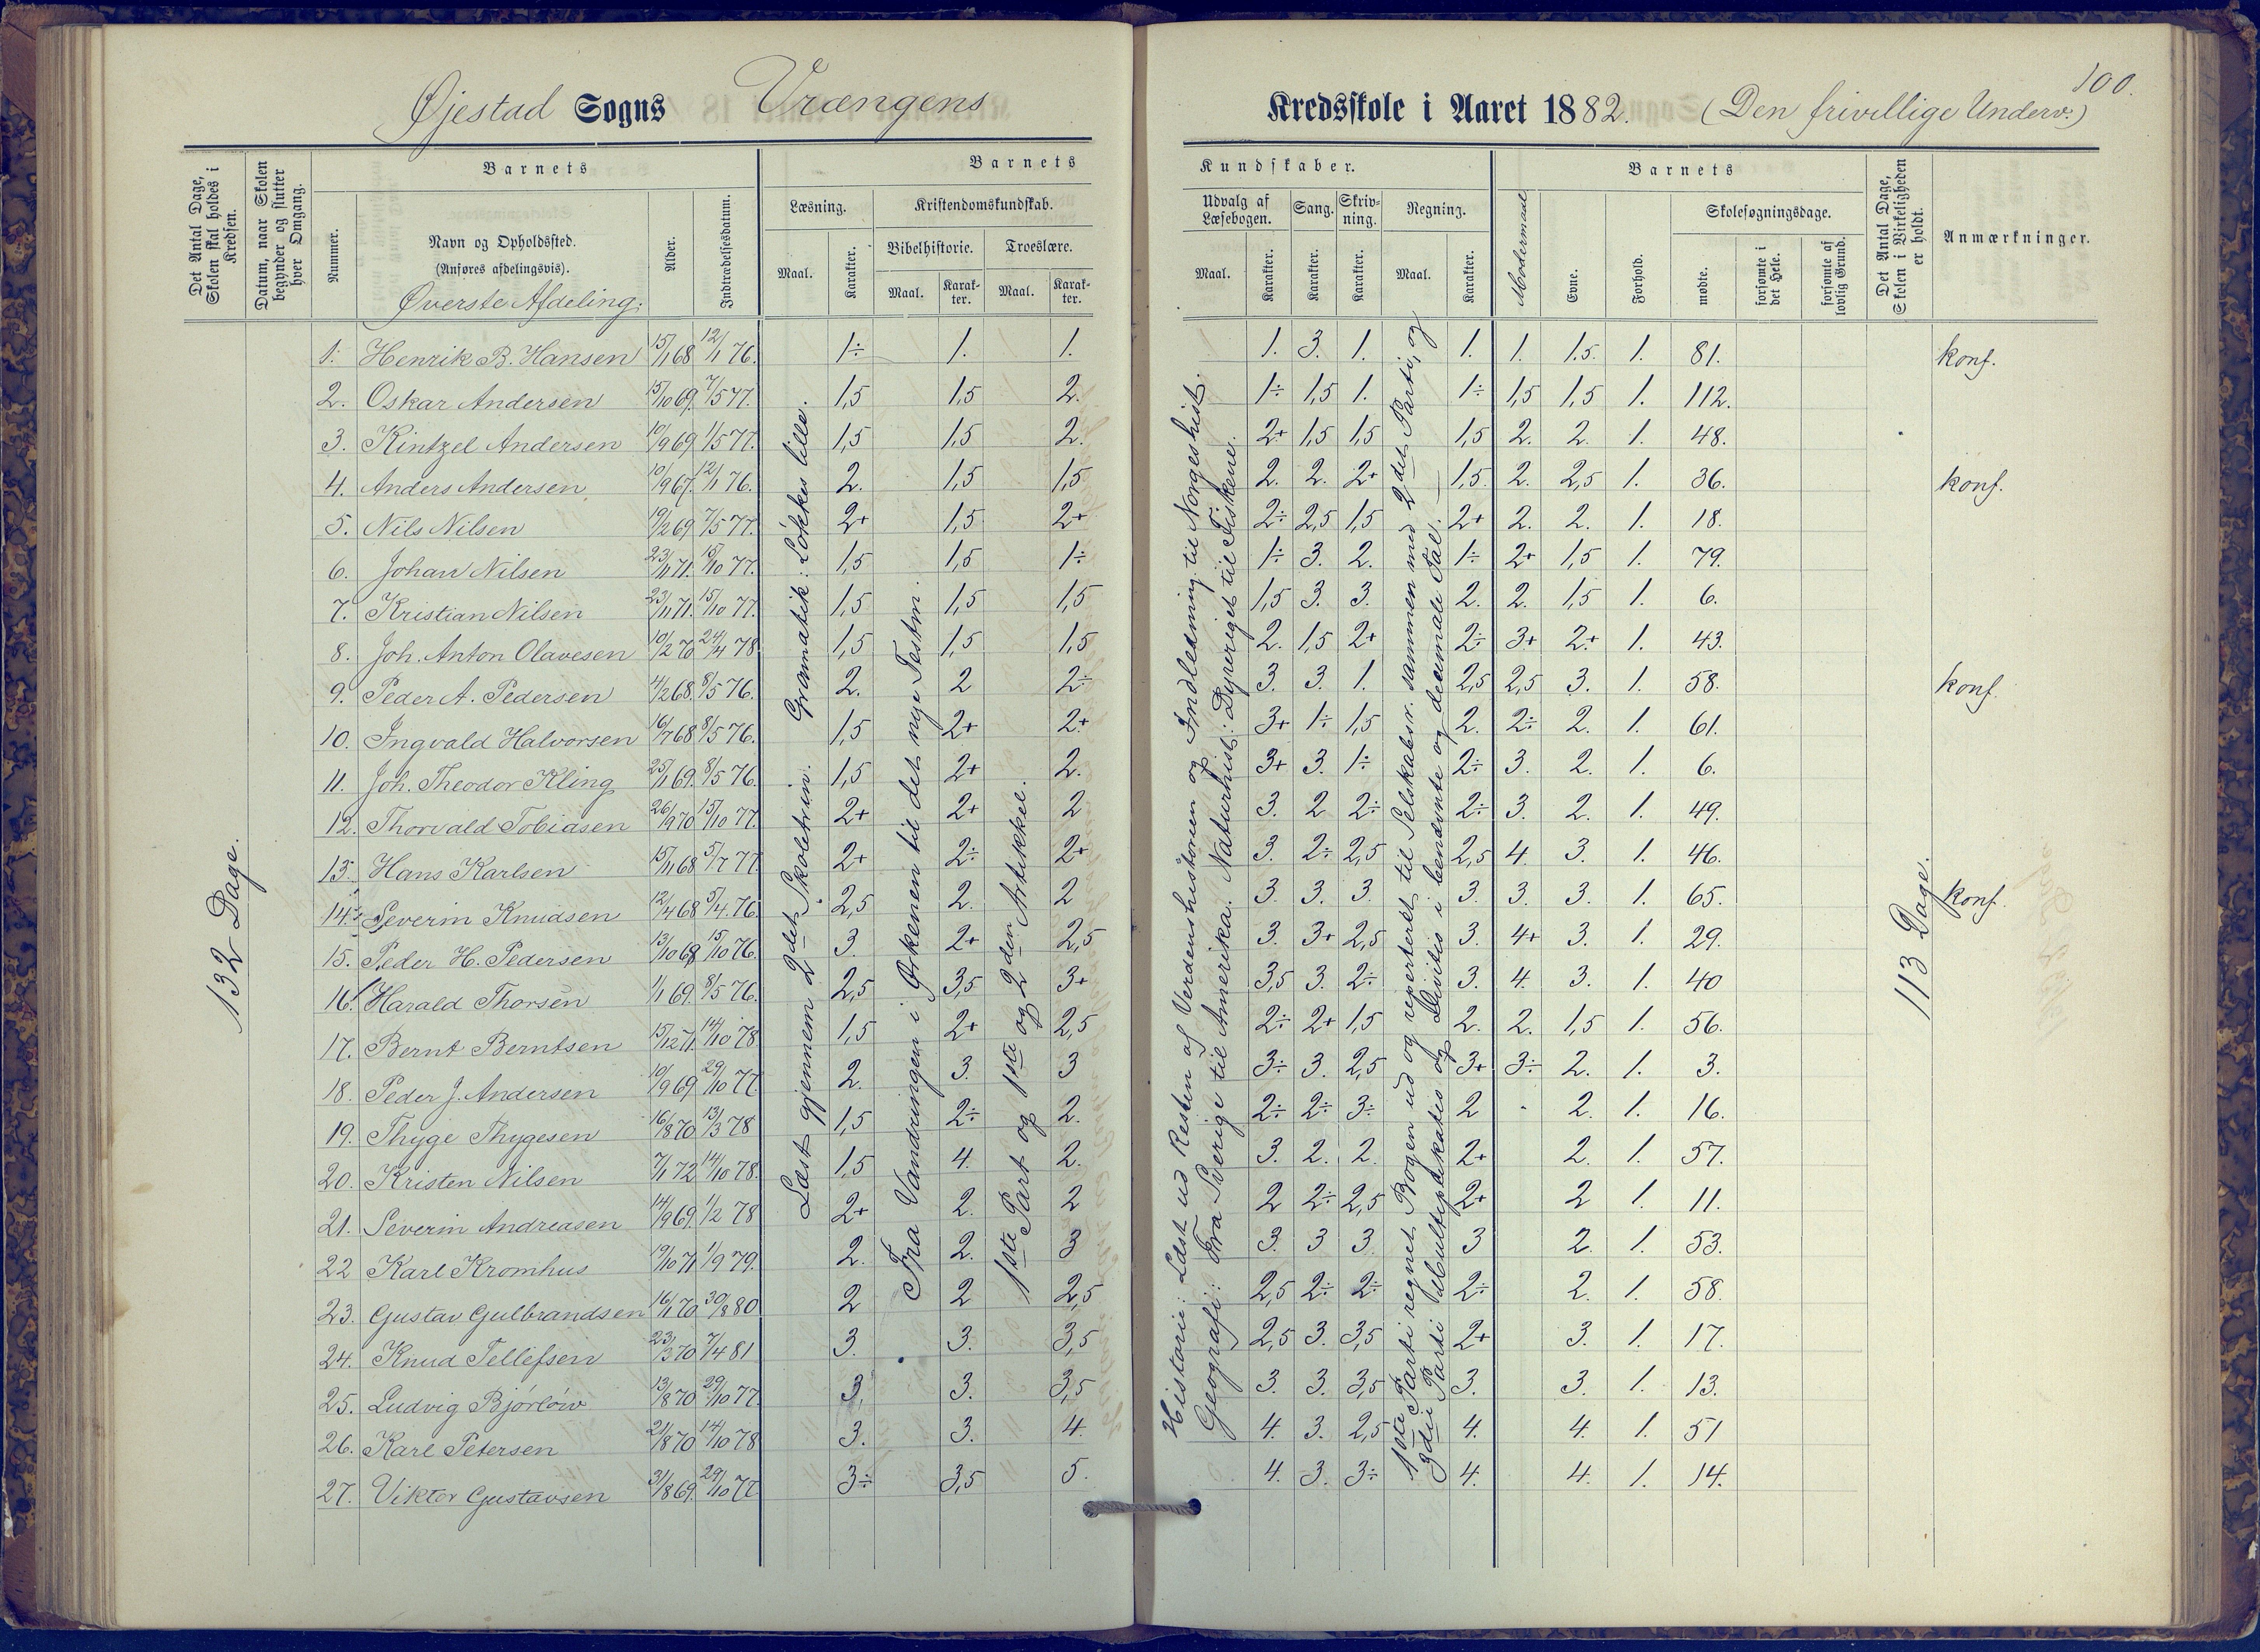 100.
Øjestad Sogns Vrængens Kredsskole i Aaret 1882. (Den frivillige Underv.)
Det Antal Dage, Skolen skal holdes i Kredsen.
Datum, naar Skolen begynder og slutter hver Omgang.
Barnets
Nummer.
Navn og Opholdssted.
(Anføres afdelingsvis).
Øverste Afdeling.
Alder.
Indtrædelsesdatum.
Barnets Kundskaber.
Læsning.
Maal. Karakter.
Kristendomskundskab.
Bibelhistorie. Troeslære.
Maal. Karakter. Maal. Karakter.
Udvalg af Læsebogen. Sang. Skrivning. Regning.
Maal. Karakter. Karakter. Karakter. Maal. Karakter.
Barnets
Modersmaal Evne. Forhold.
Skolesøgningsdage.
mødte. forsømte i det Hele. forsømte af lovlig Grund.
Det Antal Dage, Skolen i Virkeligheden er holdt.
Anmærkninger.
132 Dage.
Læst gjennem 2det Skoletrin. Gramatik: Løkkes lille.
Fra Vandringen i Ørkenen til det nye Testm.
1ste Part og 1ste og 2den Artikkel.
Historie: Læst ud Resten af Verdenshistorien og Indledning til Norgeshist.
Geografi: Fra Sverige til Amerika. Naturhist: Dyreriget til Fiskene.
1ste Parti regnet Bogen ud og repeteret til Selskabsr. sammen med 2det Parti, og
3die Parti Multiplikatis og Divitis i benævnte og decimale Tal.
113 Dage.
1. Henrik B. Hansen 15/1 68 12/1 76. 1÷ 1. 1. 1. 3. 1. 1. 1. 1.5. 1. 81. konf.
2. Oskar Andersen 15/10 69. 7/5 77. 1,5 1,5 2. 1÷ 1,5 1. 1÷ 1,5 1,5 1. 112.
3. Kintzel Andersen 10/9 69 1/5 77. 1,5 1,5 2. 2+ 1,5 1,5 1,5 2. 2. 1. 48.
4. Anders Andersen 10/9 67. 12/1 76. 2. 1,5 1,5 2. 2. 2+ 1,5. 2. 2,5 1. 36. konf.
5. Nils Nilsen 19/2 69 7/5 77. 2+ 1,5 2+ 2÷ 2,5 1,5 2+ 2. 2. 1. 18.
6. Johan Nilsen 23/11 71. 15/10 77. 1,5 1,5 1÷ 1÷ 3. 2. 1÷ 2+ 1,5 1. 79.
7. Kristian Nilsen 23/11 71. 15/10 77. 1,5 1,5 1,5 1,5 3. 3. 2. 2. 1,5 1. 6.
8. Joh. Anton Olavesen 10/2 70 24/4 78 1,5 1,5 1,5 2. 1,5 2+ 2÷ 3+ 2+ 1. 43.
9. Peder A. Pedersen 4/2 68. 8/5 76. 2. 2 2÷ 3. 3. 1. 2,5 2,5 3. 1. 58. konf.
10. Ingvald Halvorsen 16/7 68 8/5 76. 1,5 2+ 2+ 3+ 1÷ 1,5 2. 2÷ 2. 1. 61.
11. Joh. Theodor Kling 25/1 69. 8/5 76. 1,5 2+ 2. 3+ 3. 1÷ 2÷ 3. 2. 1. 6.
12. Thorvald Tobiasen 26/9 70 15/10 77. 2+ 2+ 2 3. 2 2÷ 2÷ 3. 2. 1. 49.
13. Hans Karlsen 15/11 68 5/7 77 2+ 2÷ 2+ 3. 2÷ 2,5 2,5 4. 3. 1. 46.
14. Severin Knudsen 12/4 68 5/4 76. 2,5 2. 2 3. 3. 3. 3. 3. 3. 1. 65. konf.
15. Peder H. Pedersen 13/10 68 15/10 76. 3. 2+ 2,5 3. 3+ 2,5 3. 4+ 3. 1. 29.
16. Harald Thorsen 1/1 69. 8/5 76. 2,5 3,5 3+ 3,5 3. 2÷ 3. 4. 3. 1. 40
17. Bernt Berntsen 15/12 71. 14/10 78 1,5 2+ 2,5 2÷ 2+ 1,5 2. 2. 1,5 1. 56.
18. Peder J. Andersen 10/9 69 29/10 77 2. 3. 3 3÷ 3. 2,5 3+ 3÷ 2. 1. 3.
19. Thyge Thygesen 16/8 70 13/3 78 1,5 2÷ 2. 2÷ 2÷ 3÷ 2 - 2. 1. 16.
20. Kristen Nilsen 7/1 72 14/10 78. 1,5 4. 2. 3. 2. 2. 2+ 2. 1. 57.
21. Severin Andreasen 14/9 69. 1/2 78 2+ 2. 2 2 2÷ 2,5 2+ 2 1. 11.
22 Karl Kromhus 19/10 71 1/9 79. 2. 2. 3 3. 3 3. 3 2. 1. 53.
23. Gustav Gulbrandsen 16/1 70 30/8 80 2 2 2,5 2,5 2÷ 2÷ 2÷ 2. 1. 58.
24. Knud Tellefsen 23/3 70 7/4 81 3. 3. 3,5 2,5 3. 3,5 2+ 3. 1. 17.
25. Ludvig Bjørløw 13/8 70 29/10 77. 3. 3. 3,5 3. 3. 3,5 3. 3. 1. 13.
26. Karl Petersen 21/8 70 14/10 78 3. 3. 4. 4. 3. 2,5 4. 4. 1. 51
27. Viktor Gustavsen 31/8 69. 29/10 77. 3÷ 3,5 5. 4. 3. 3÷ 4. 4. 1. 14.